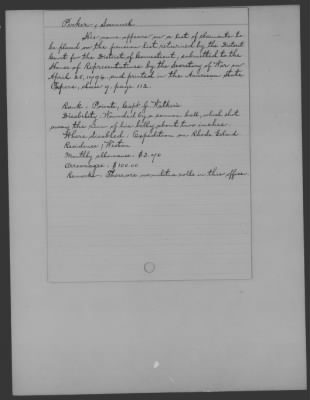 Parker, Samuel
His name appears on a list of claimants to
be placed on the pension list returned by the District
Court for the District of Connecticut, submitted to the
House of Representatives by the Secretary of War on
April 25, 1794, and printed in the American State
Papers, class 9, page 112.
Rank: Private, Capt G. Watkins
Disability: Wounded by a cannon ball, which shot
away the rim of his belly about two inches.
Where disabled: Expedition on Rhode Island
Residence: Weston
Monthly allowance: $2.40
Arrearages: $100.00
Remarks: There are no militia rolls in this office.